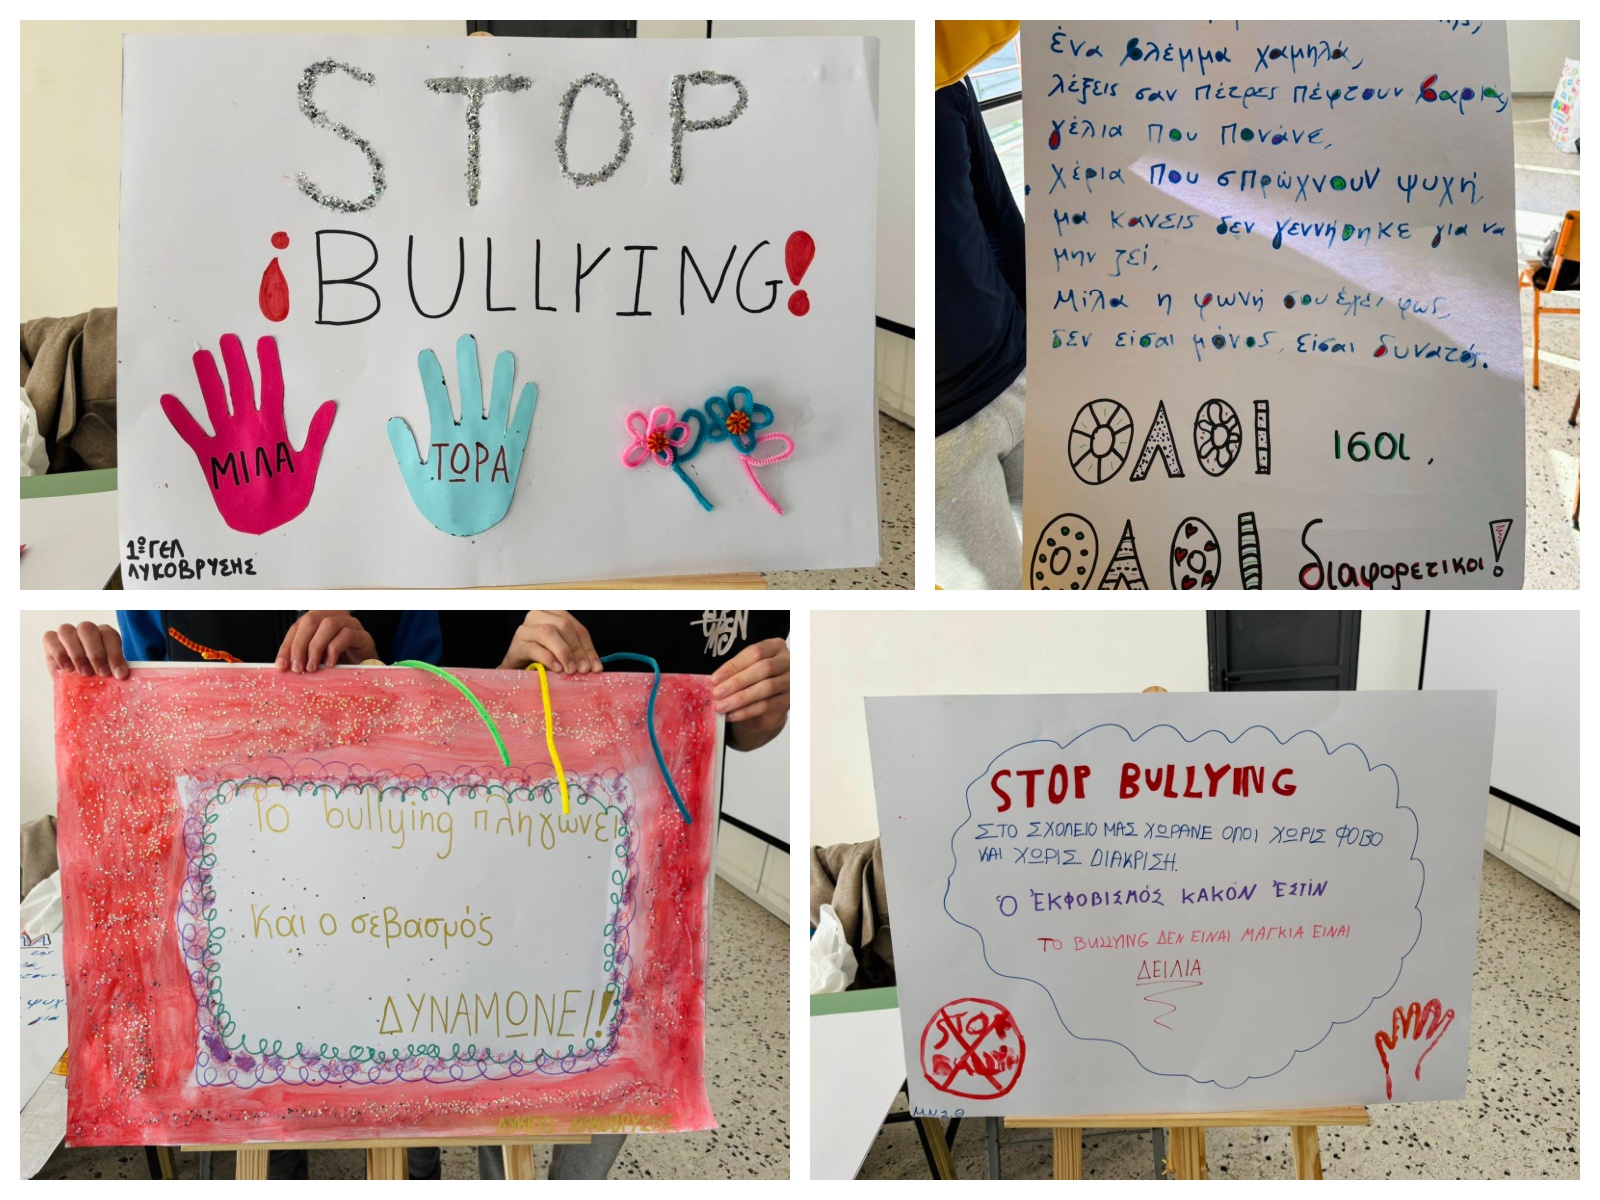 STOP
¡BULLYING!
ΜΙΛΑ
ΤΩΡΑ
1º ΓΕΛ
ΛΥΚΟΒΡΥΣΗΣ
ένα βλέμμα χαμηλά,
λέξεις σαν πέτρες πέφτουν βαριά,
γέλια που πονάνε,
χέρια που σπρώχνουν ψυχή,
μα κανείς δεν γεννήθηκε για να
μην ζεί,
Μίλα η φωνή σου έχει φως,
δεν είσαι μόνος, είσαι δυνατός.
ΟΛΟΙ ισοι,
ΟΛΟΙ διαφορετικοι!
Το bullying πληγώνει
και ο σεβασμός
ΔΥΝΑΜΩΝΕΙ!!
ΛΥΚΕΙΟ ΛΥΚΟΒΡΥΣΗΣ
STOP BULLYING
ΣΤΟ ΣΧΟΛΕΙΟ ΜΑΣ ΧΩΡΑΝΕ ΟΛΟΙ ΧΩΡΙΣ ΦΟΒΟ
ΚΑΙ ΧΩΡΙΣ ΔΙΑΚΡΙΣΗ.
Ὁ ἘΚΦΟΒΙΣΜΌΣ ΚΑΚΌΝ ἘΣΤΊΝ
ΤΟ BULLYING ΔΕΝ ΕΙΝΑΙ ΜΑΓΚΙΑ ΕΙΝΑΙ
ΔΕΙΛΙΑ
STOP